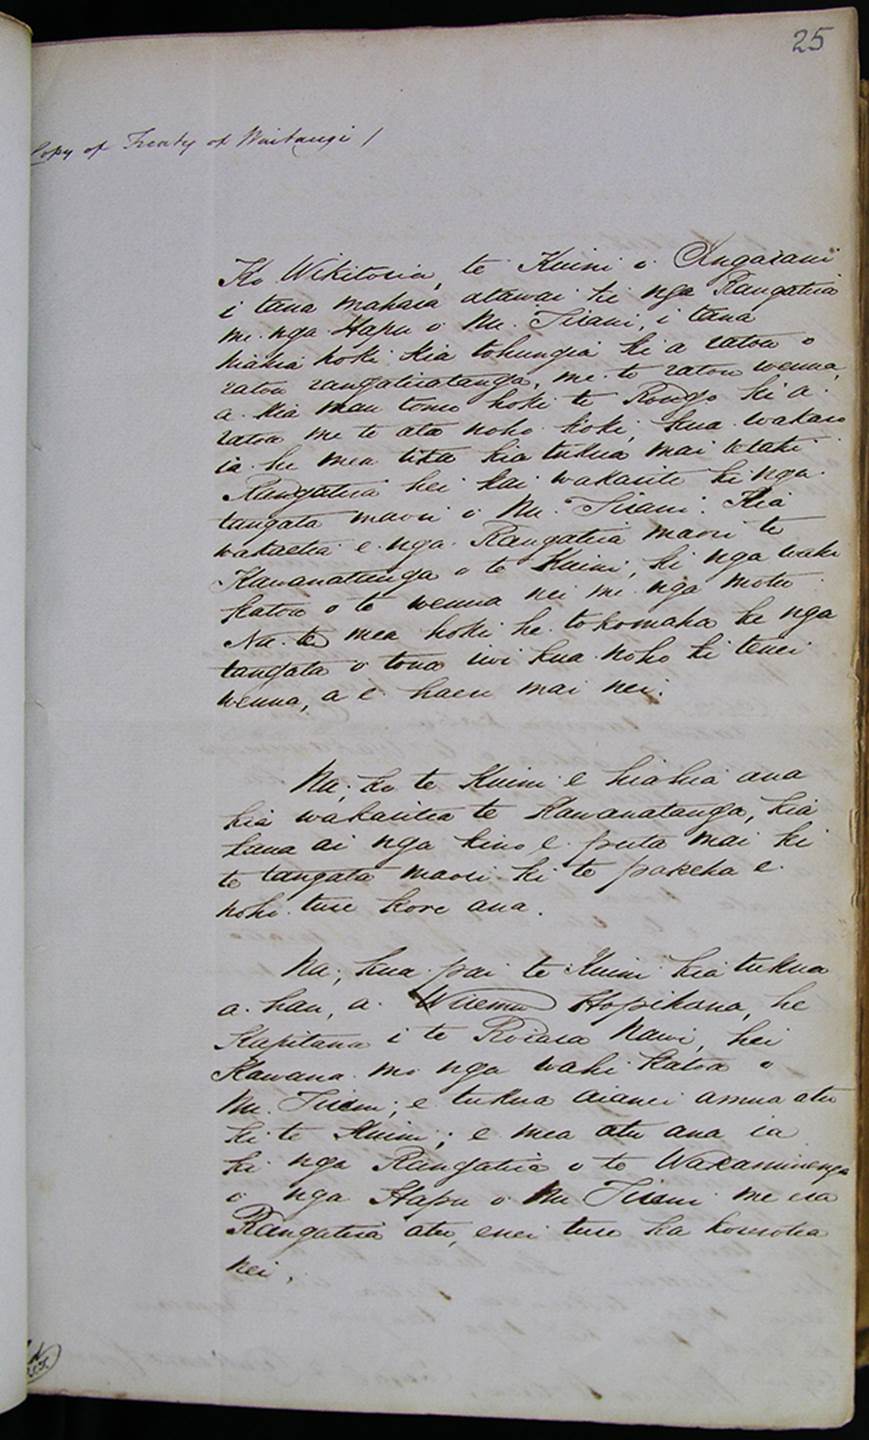 25
Copy of Treaty of Waitangi /
Ko Wikitoria, te Kuini o Ingarani
i tana mahara atawai ki nga Rangatira
me nga Hapu o Nu. Tirani, i tana
hiahia hoki kia tohungia ki a ratou o
ratou rangatiratanga, me te ratou wenua,
a kia mau tonu hoki te Rongo ki a
ratou me te ata noho hoki, kua wakaro
ia he mea tika kia tukua mai tetahi
Rangatira hei kai wakarite ki nga
tangata maori o Nu. Tirani. Kia
wakaetia e nga Rangatira maori te
Kawanatanga o te Kuini, ki nga wahi
Katoa o te wenua nei me nga motu
Na te mea hoki he tokomaha ke nga
tangata o tona iwi kua noho ki tenei
wenua, a e haere mai nei.
Na, ko te Kuini e hiahia ana
kia wakaritea te Kawanatanga, kia
kaua ai nga kino e puta mai ki
te tangata maori ki te pakeha e
noho ture kore ana.
Na, kua pai te Kuini kia tukua
a hau, a Wiremu Hopihana, he
Kapitana i te Roiara Nawi, hei
Kawana mo nga wahi Katoa o
Nu. Tirani, e tukua aianei amua atu
ki te Kuini; e mea atu ana ia
ki nga Rangatira o te Wakaminenga
o nga Hapu o Nu Tirani me era
Rangatira atu, enei ture ka korerotia
nei,